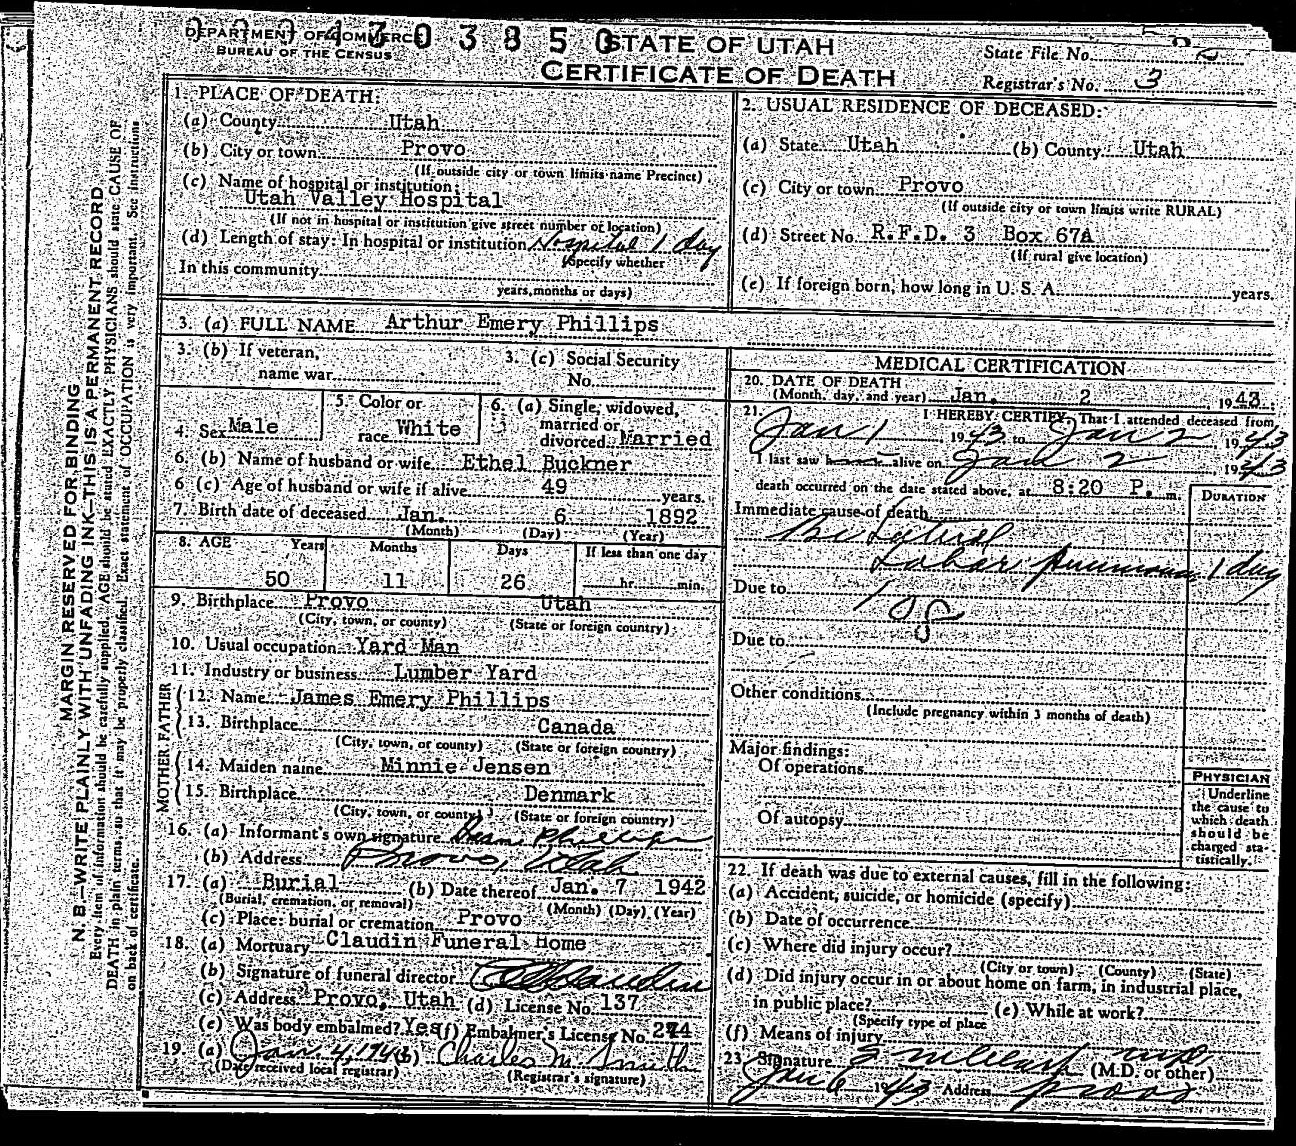 DEPARTMENT OF COMMERCE
BUREAU OF THE CENSUS
STATE OF UTAH
CERTIFICATE OF DEATH
State File No.
Registrar's No. 3
MARGIN RESERVED FOR BINDING
N. B.—WRITE PLAINLY WITH UNFADING INK—THIS IS A PERMANENT RECORD
Every item of information should be carefully supplied. AGE should be stated EXACTLY. PHYSICIANS should state CAUSE OF
DEATH in plain terms, so that it may be properly classified. Exact statement of OCCUPATION is very important. See instructions
on back of certificate.
1. PLACE OF DEATH:
(a) County Utah
(b) City or town Provo
(If outside city or town limits name Precinct)
(c) Name of hospital or institution:
Utah Valley Hospital
(If not in hospital or institution give street number or location)
(d) Length of stay: In hospital or institution Hospital 1 day
(Specify whether
In this community
years, months or days)
2. USUAL RESIDENCE OF DECEASED:
(a) State Utah (b) County Utah
(c) City or town Provo
(If outside city or town limits write RURAL)
(d) Street No. R.F.D. 3 Box 67A
(If rural give location)
(e) If foreign born, how long in U. S. A. years.
3. (a) FULL NAME Arthur Emery Phillips
3. (b) If veteran,
name war
3. (c) Social Security
No.
4. Sex Male
5. Color or
race White
6. (a) Single, widowed,
married or
divorced Married
6. (b) Name of husband or wife Ethel Buckner
6 (c) Age of husband or wife if alive 49 years.
7. Birth date of deceased Jan. 6 1892
(Month) (Day) (Year)
8. AGE Years Months Days If less than one day
50 11 26 hr. min.
9. Birthplace Provo Utah
(City, town, or county) (State or foreign country)
10. Usual occupation Yard Man
11. Industry or business Lumber Yard
FATHER
12. Name James Emery Phillips
13. Birthplace Canada
(City, town, or county) (State or foreign country)
MOTHER
14. Maiden name Minnie Jensen
15. Birthplace Denmark
(City, town, or county) (State or foreign country)
16. (a) Informant's own signature Phillips
(b) Address Provo, Utah
17. (a) Burial (b) Date thereof Jan. 7 1942
(Burial, cremation, or removal) (Month) (Day) (Year)
(c) Place: burial or cremation Provo
18. (a) Mortuary Claudin Funeral Home
(b) Signature of funeral director Claudin
(c) Address Provo, Utah (d) License No. 137
(e) Was body embalmed? Yes (f) Embalmer's License No.
19. (a) Jan. 4, 1943 (b) Charles M. Smith
(Date received local registrar) (Registrar's signature)
MEDICAL CERTIFICATION
20. DATE OF DEATH
(Month, day, and year) Jan. 2 1943
21. I HEREBY CERTIFY, That I attended deceased from
Jan 1 1943 to Jan 2 1943
I last saw alive on Jan 2, 1943
death occurred on the date stated above, at 8:20 P. m.
DURATION
Immediate cause of death
Bilateral
Lobar Pneumonia 1 day
Due to
108
Due to
Other conditions
(Include pregnancy within 3 months of death)
Major findings:
Of operations
Of autopsy
PHYSICIAN
Underline
the cause to
which death
should be
charged sta-
tistically.
22. If death was due to external causes, fill in the following:
(a) Accident, suicide, or homicide (specify)
(b) Date of occurrence
(c) Where did injury occur?
(City or town) (County) (State)
(d) Did injury occur in or about home on farm, in industrial place,
in public place? (e) While at work?
(Specify type of place
(f) Means of injury
23. Signature (M.D. or other)
Jan 6 1943 Address Provo